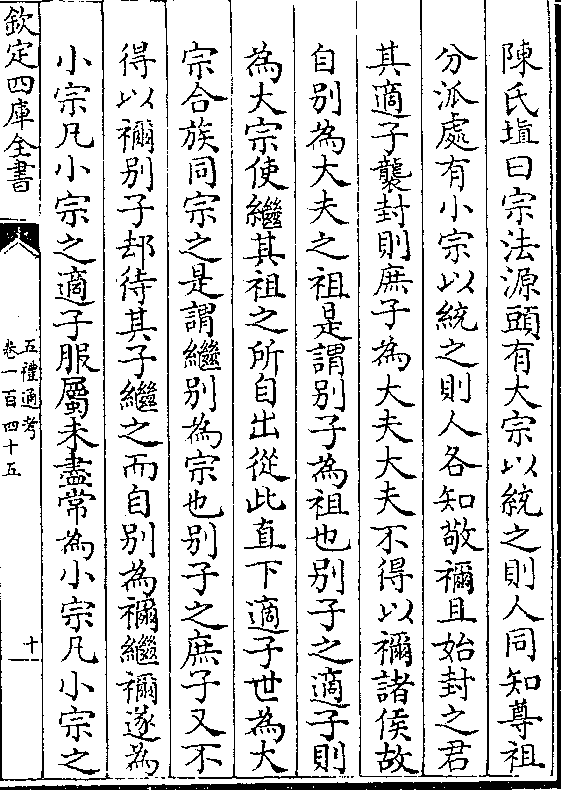 陳氏塤曰宗法源頭有大宗以統之則人同知尊祖
分派處有小宗以統之則人各知敬禰且始封之君
其適子襲封則庶子為大夫大夫不得以禰諸侯故
自别為大夫之祖是謂别子為祖也别子之適子則
為大宗使繼其祖之所自出從此直下適子世為大
宗合族同宗之是謂繼别為宗也别子之庶子又不
得以禰别子却待其子繼之而自别為禰繼禰遂為
小宗凡小宗之適子服屬未盡常為小宗凡小宗之
欽定四庫全書
五禮通考
卷一百四十五
十